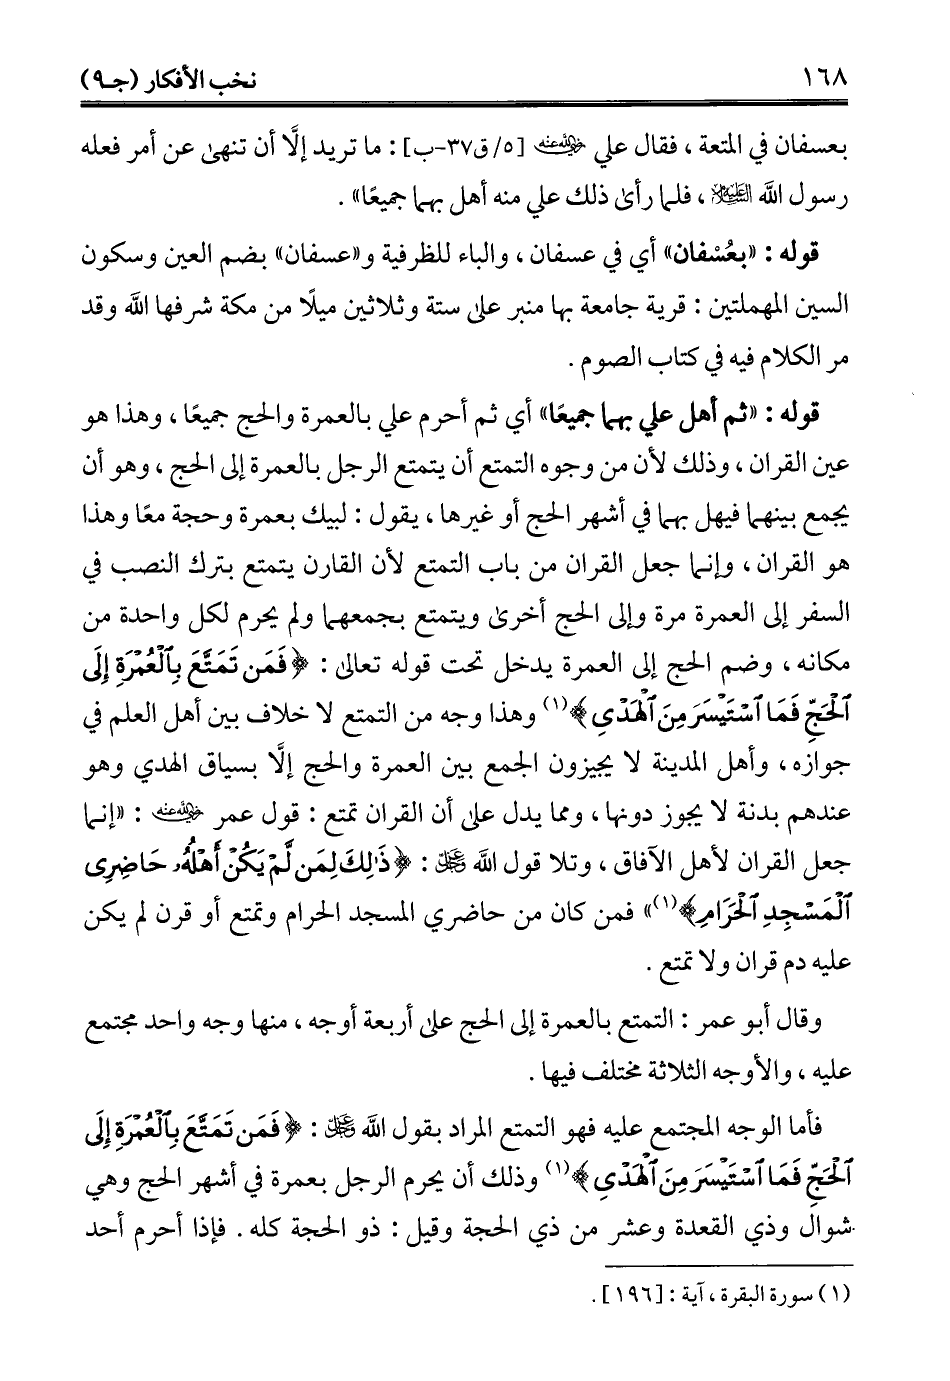 ١٦٨
نخب الأفكار (جـ٩)
بعسفان في المتعة ، فقال علي رضي الله عنه [٥/ ق٣٧-ب] : ما تريد إلَّا أن تنهىٰ عن أمر فعله
رسول الله عليه السلام ، فلما رأىٰ ذلك علي منه أهل بهما جميعًا» .
قوله : «بعُسْفان» أي في عسفان ، والباء للظرفية و«عسفان» بضم العين وسكون
السين المهملتين : قرية جامعة بها منبر علىٰ ستة وثلاثين ميلًا من مكة شرفها الله وقد
مر الكلام فيه في كتاب الصوم .
قوله : «ثم أهل علي بهما جميعًا» أي ثم أحرم علي بالعمرة والحج جميعًا ، وهذا هو
عين القران ، وذلك لأن من وجوه التمتع أن يتمتع الرجل بالعمرة إلى الحج ، وهو أن
يجمع بينهما فيهل بهما في أشهر الحج أو غيرها ، يقول : لبيك بعمرة وحجة معًا وهذا
هو القران ، وإنما جعل القران من باب التمتع لأن القارن يتمتع بترك النصب في
السفر إلى العمرة مرة وإلى الحج أخرىٰ ويتمتع بجمعهما ولم يحرم لكل واحدة من
مكانه ، وضم الحج إلى العمرة يدخل تحت قوله تعالىٰ : ﴿فَمَن تَمَتَّعَ بِٱلْعُمْرَةِ إِلَى
ٱلْحَجِّ فَمَا ٱسْتَيْسَرَ مِنَ ٱلْهَدْىِ﴾(١) وهذا وجه من التمتع لا خلاف بين أهل العلم في
جوازه ، وأهل المدينة لا يجيزون الجمع بين العمرة والحج إلَّا بسياق الهدي وهو
عندهم بدنة لا يجوز دونها ، ومما يدل علىٰ أن القران تمتع : قول عمر رضي الله عنه : «إنما
جعل القران لأهل الآفاق ، وتلا قول الله عز وجل : ﴿ذَٰلِكَ لِمَن لَّمْ يَكُنْ أَهْلُهُۥ حَاضِرِى
ٱلْمَسْجِدِ ٱلْحَرَامِ﴾(١)» فمن كان من حاضري المسجد الحرام وتمتع أو قرن لم يكن
عليه دم قران ولا تمتع .
وقال أبو عمر : التمتع بالعمرة إلى الحج علىٰ أربعة أوجه ، منها وجه واحد مجتمع
عليه ، والأوجه الثلاثة مختلف فيها .
فأما الوجه المجتمع عليه فهو التمتع المراد بقول الله عز وجل : ﴿فَمَن تَمَتَّعَ بِٱلْعُمْرَةِ إِلَى
ٱلْحَجِّ فَمَا ٱسْتَيْسَرَ مِنَ ٱلْهَدْىِ﴾(١) وذلك أن يحرم الرجل بعمرة في أشهر الحج وهي
شوال وذي القعدة وعشر من ذي الحجة وقيل : ذو الحجة كله . فإذا أحرم أحد
(١) سورة البقرة ، آية : [١٩٦] .